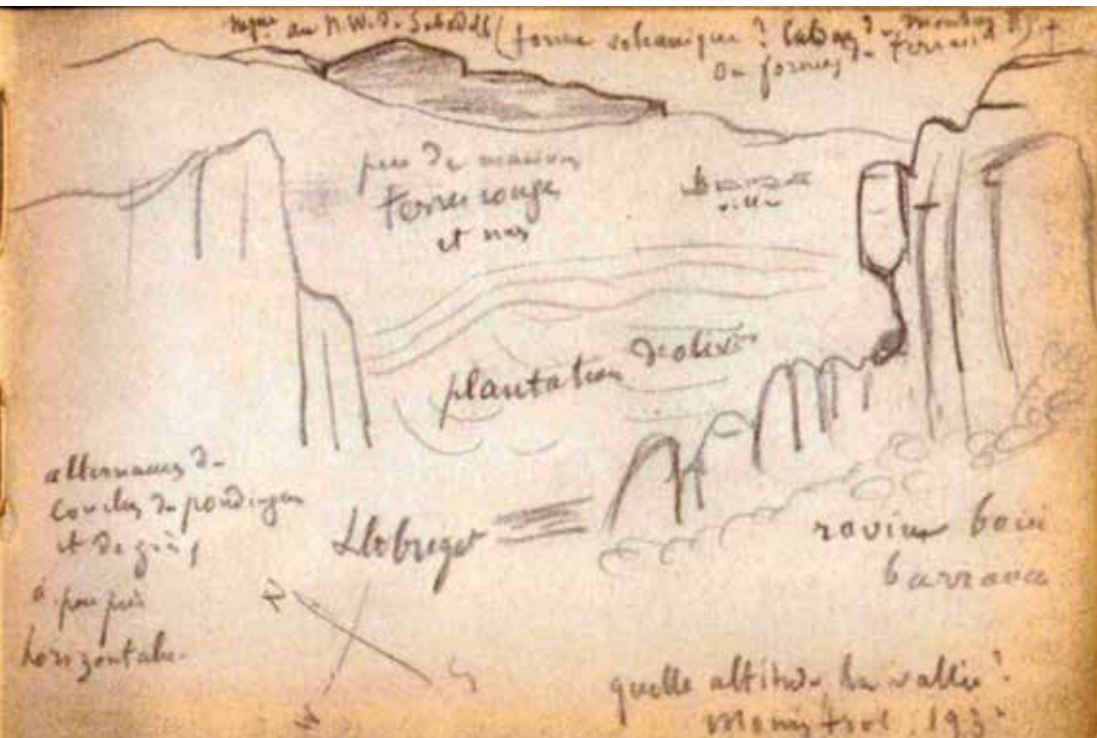 au N.W. de Sabadell (forme volcanique ?
ou formes de terrain
peu de maisons
terres rouges
et
ville
plantation d'olivier
alternances de
couches de poudingues
et de grès,
à peu près
horizontales
Llobregat
ravin boisé
barranca
N
S
quelle altitude la vallée ?
Monistrol, 193